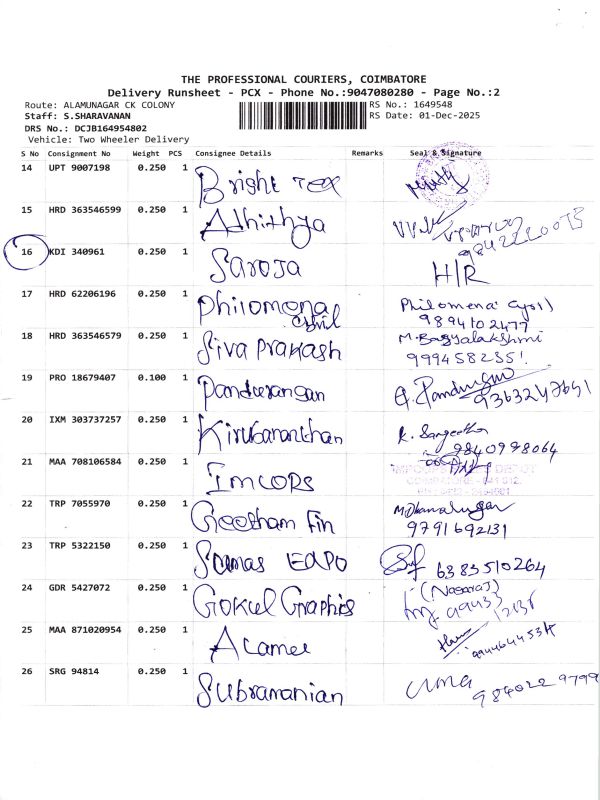 THE PROFESSIONAL COURIERS, COIMBATORE
Delivery Runsheet - PCX - Phone No.:9047080280 - Page No.:2
Route: ALAMUNAGAR CK COLONY RS No.: 1649548
Staff: S.SHARAVANAN RS Date: 01-Dec-2025
DRS No.: DCJB164954802
Vehicle: Two Wheeler Delivery
S No Consignment No Weight PCS Consignee Details Remarks Seal & Signature
14 UPT 9007198 0.250 1 Bright Tex
15 HRD 363546599 0.250 1 Adhithya
16 KDI 340961 0.250 1 Saroja H/R
17 HRD 62206196 0.250 1 Philomona Philomena Cyril
9894102477
18 HRD 363546579 0.250 1 Siva Prakash M. Bagyalakshmi
19 PRO 18679407 0.100 1 Pandurangan
20 IXM 303737257 0.250 1 Kirubananthan K. Sangeetha
9840998064
21 MAA 708106584 0.250 1 IMCOPS
22 TRP 7055970 0.250 1 Geetham Fin
9791692131
23 TRP 5322150 0.250 1 Samas EXPO 6383510264
24 GDR 5427072 0.250 1 Gokul Graphics (Nagaraj)
25 MAA 871020954 0.250 1
26 SRG 94814 0.250 1 Subramanian uma